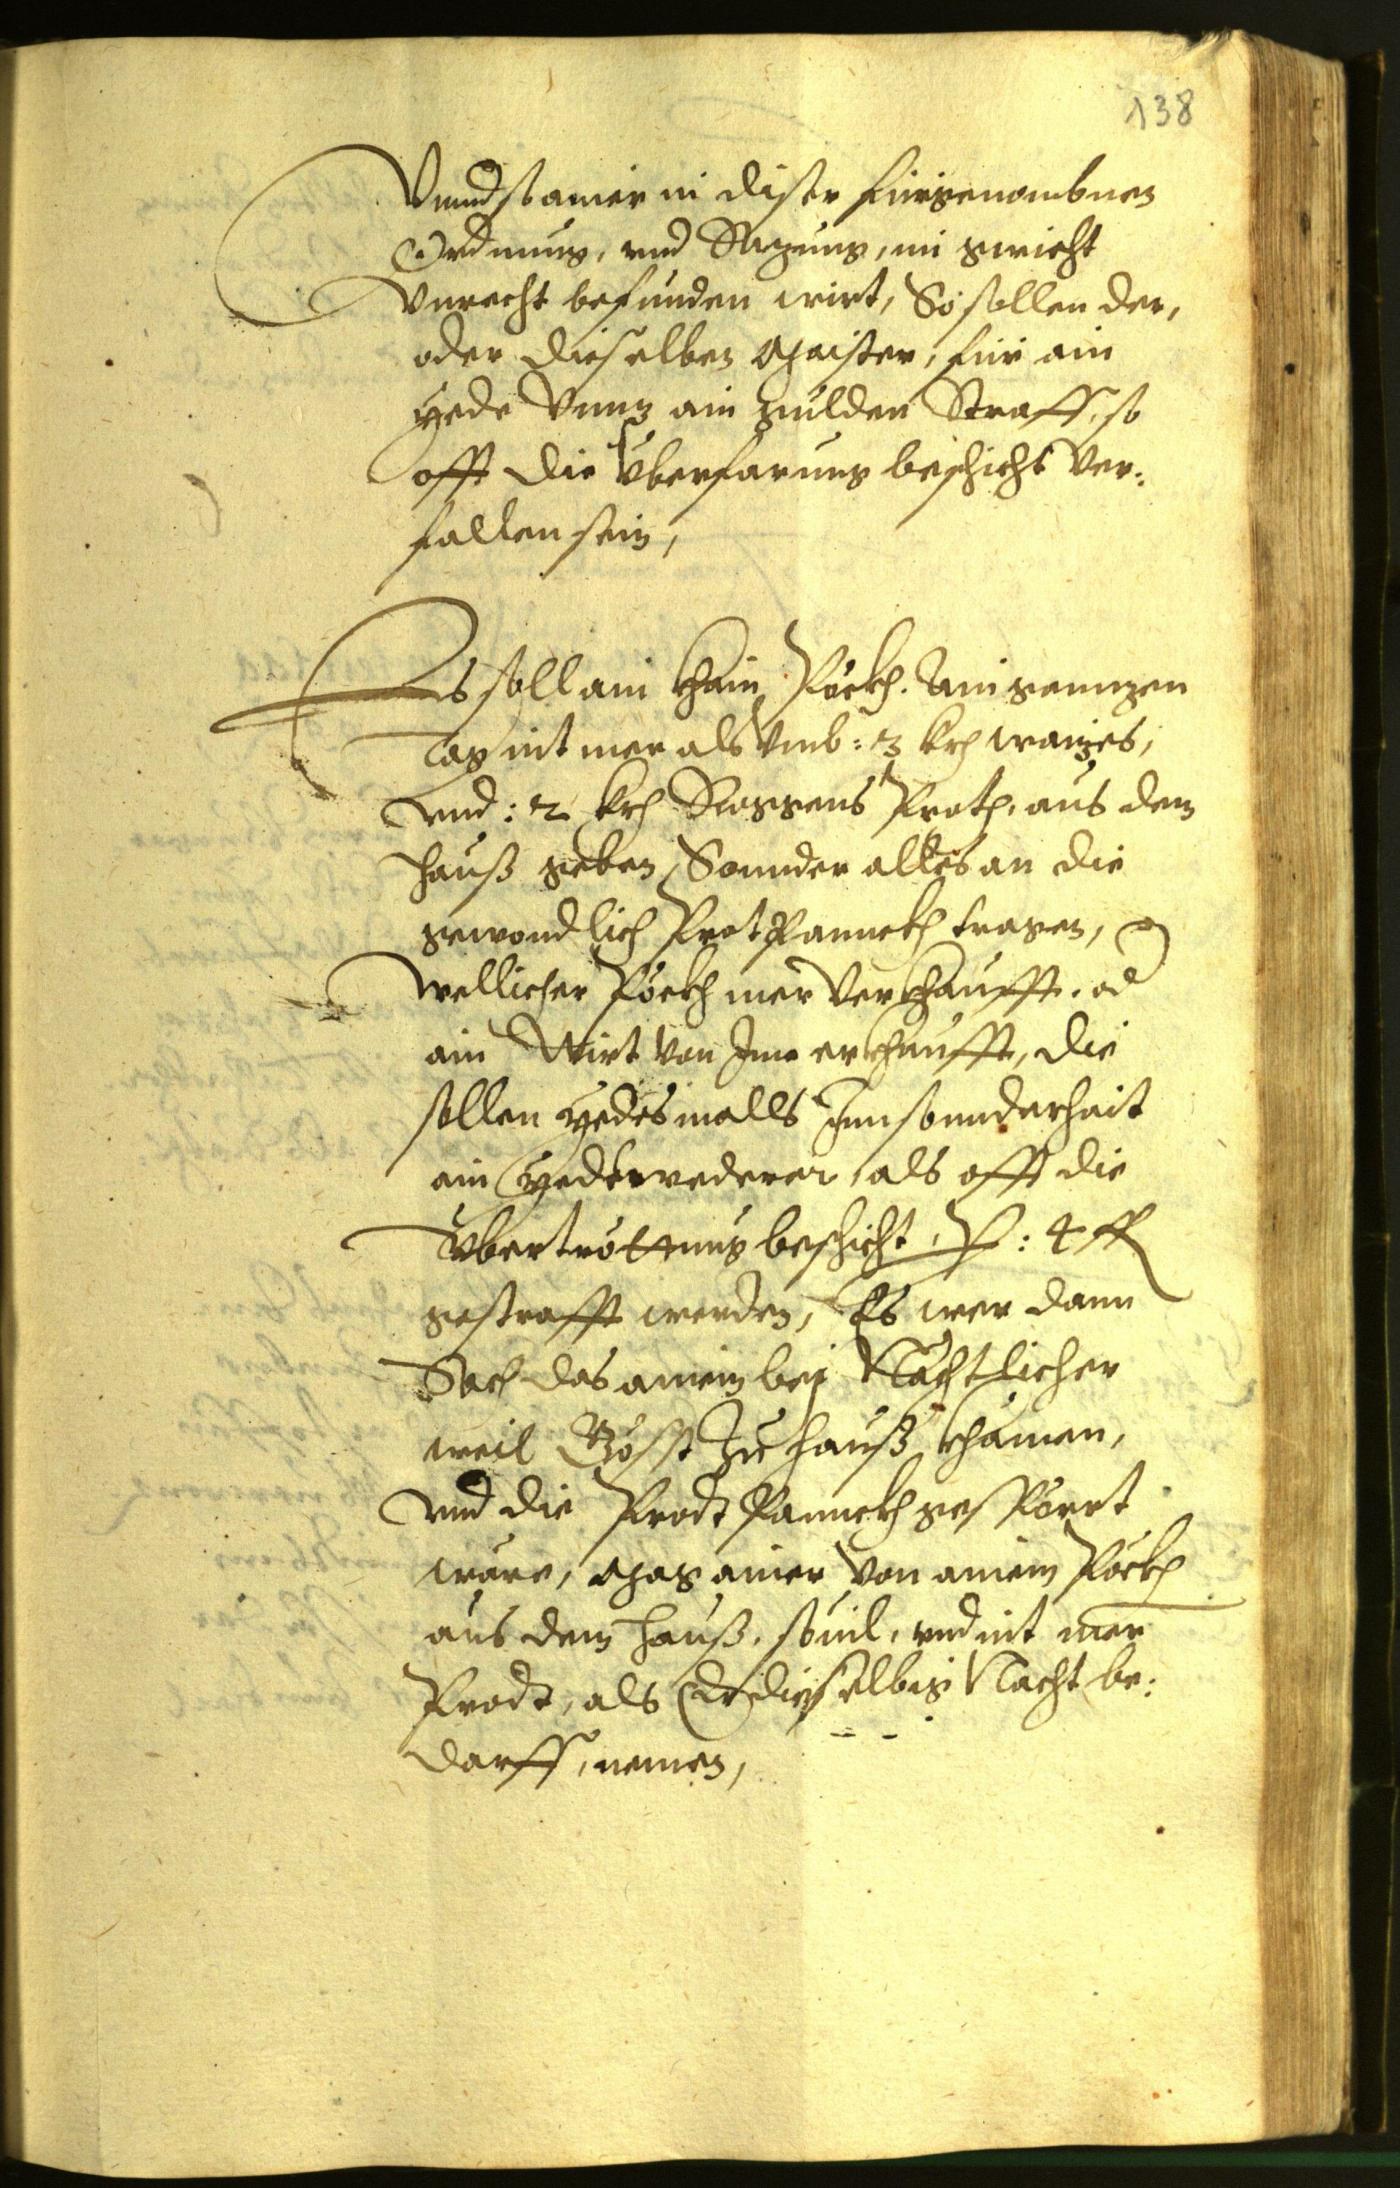 138
Vnnd so ainer in diser fürgenombnen
Ordnung, vnd Satzung, im gwicht
Vnrecht befunden wirt, So sollen der,
oder dieselben Maister, für ain
yede Vnnz ain gulden Straff, so
offt die Vberfarung beschicht Ver:
fallen sein,
Es soll ain khain Pöckh. Am ganntzen
Tag nit mer als Vmb: 3 krh waitzes,
vnd: 2 krh Roggens Prot, aus dem
hauß geben, Sonnder alles an die
gewondlich Protpannckh tragen,
wellicher Pöckh mer Verkhaufft, od
ain Wirt Von Ime erkhaufft, die
sollen yedesmalls Innsonnderhait
ain yedtwederer, als offt die
Vbertröttung beschicht, P: 4 ff
gestrafft werden, Es wer dann
Sach das ainem bej Nächtlicher
weil Gösst zu hauß khämen,
vnd die Prodt Pannckh gespörrt
wäre, Mag ainer Von ainem Pöckh
aus dem hauß, souil, vnd nit mer
Prodt, als Er dieselbig Nacht be:
darff, nemen,